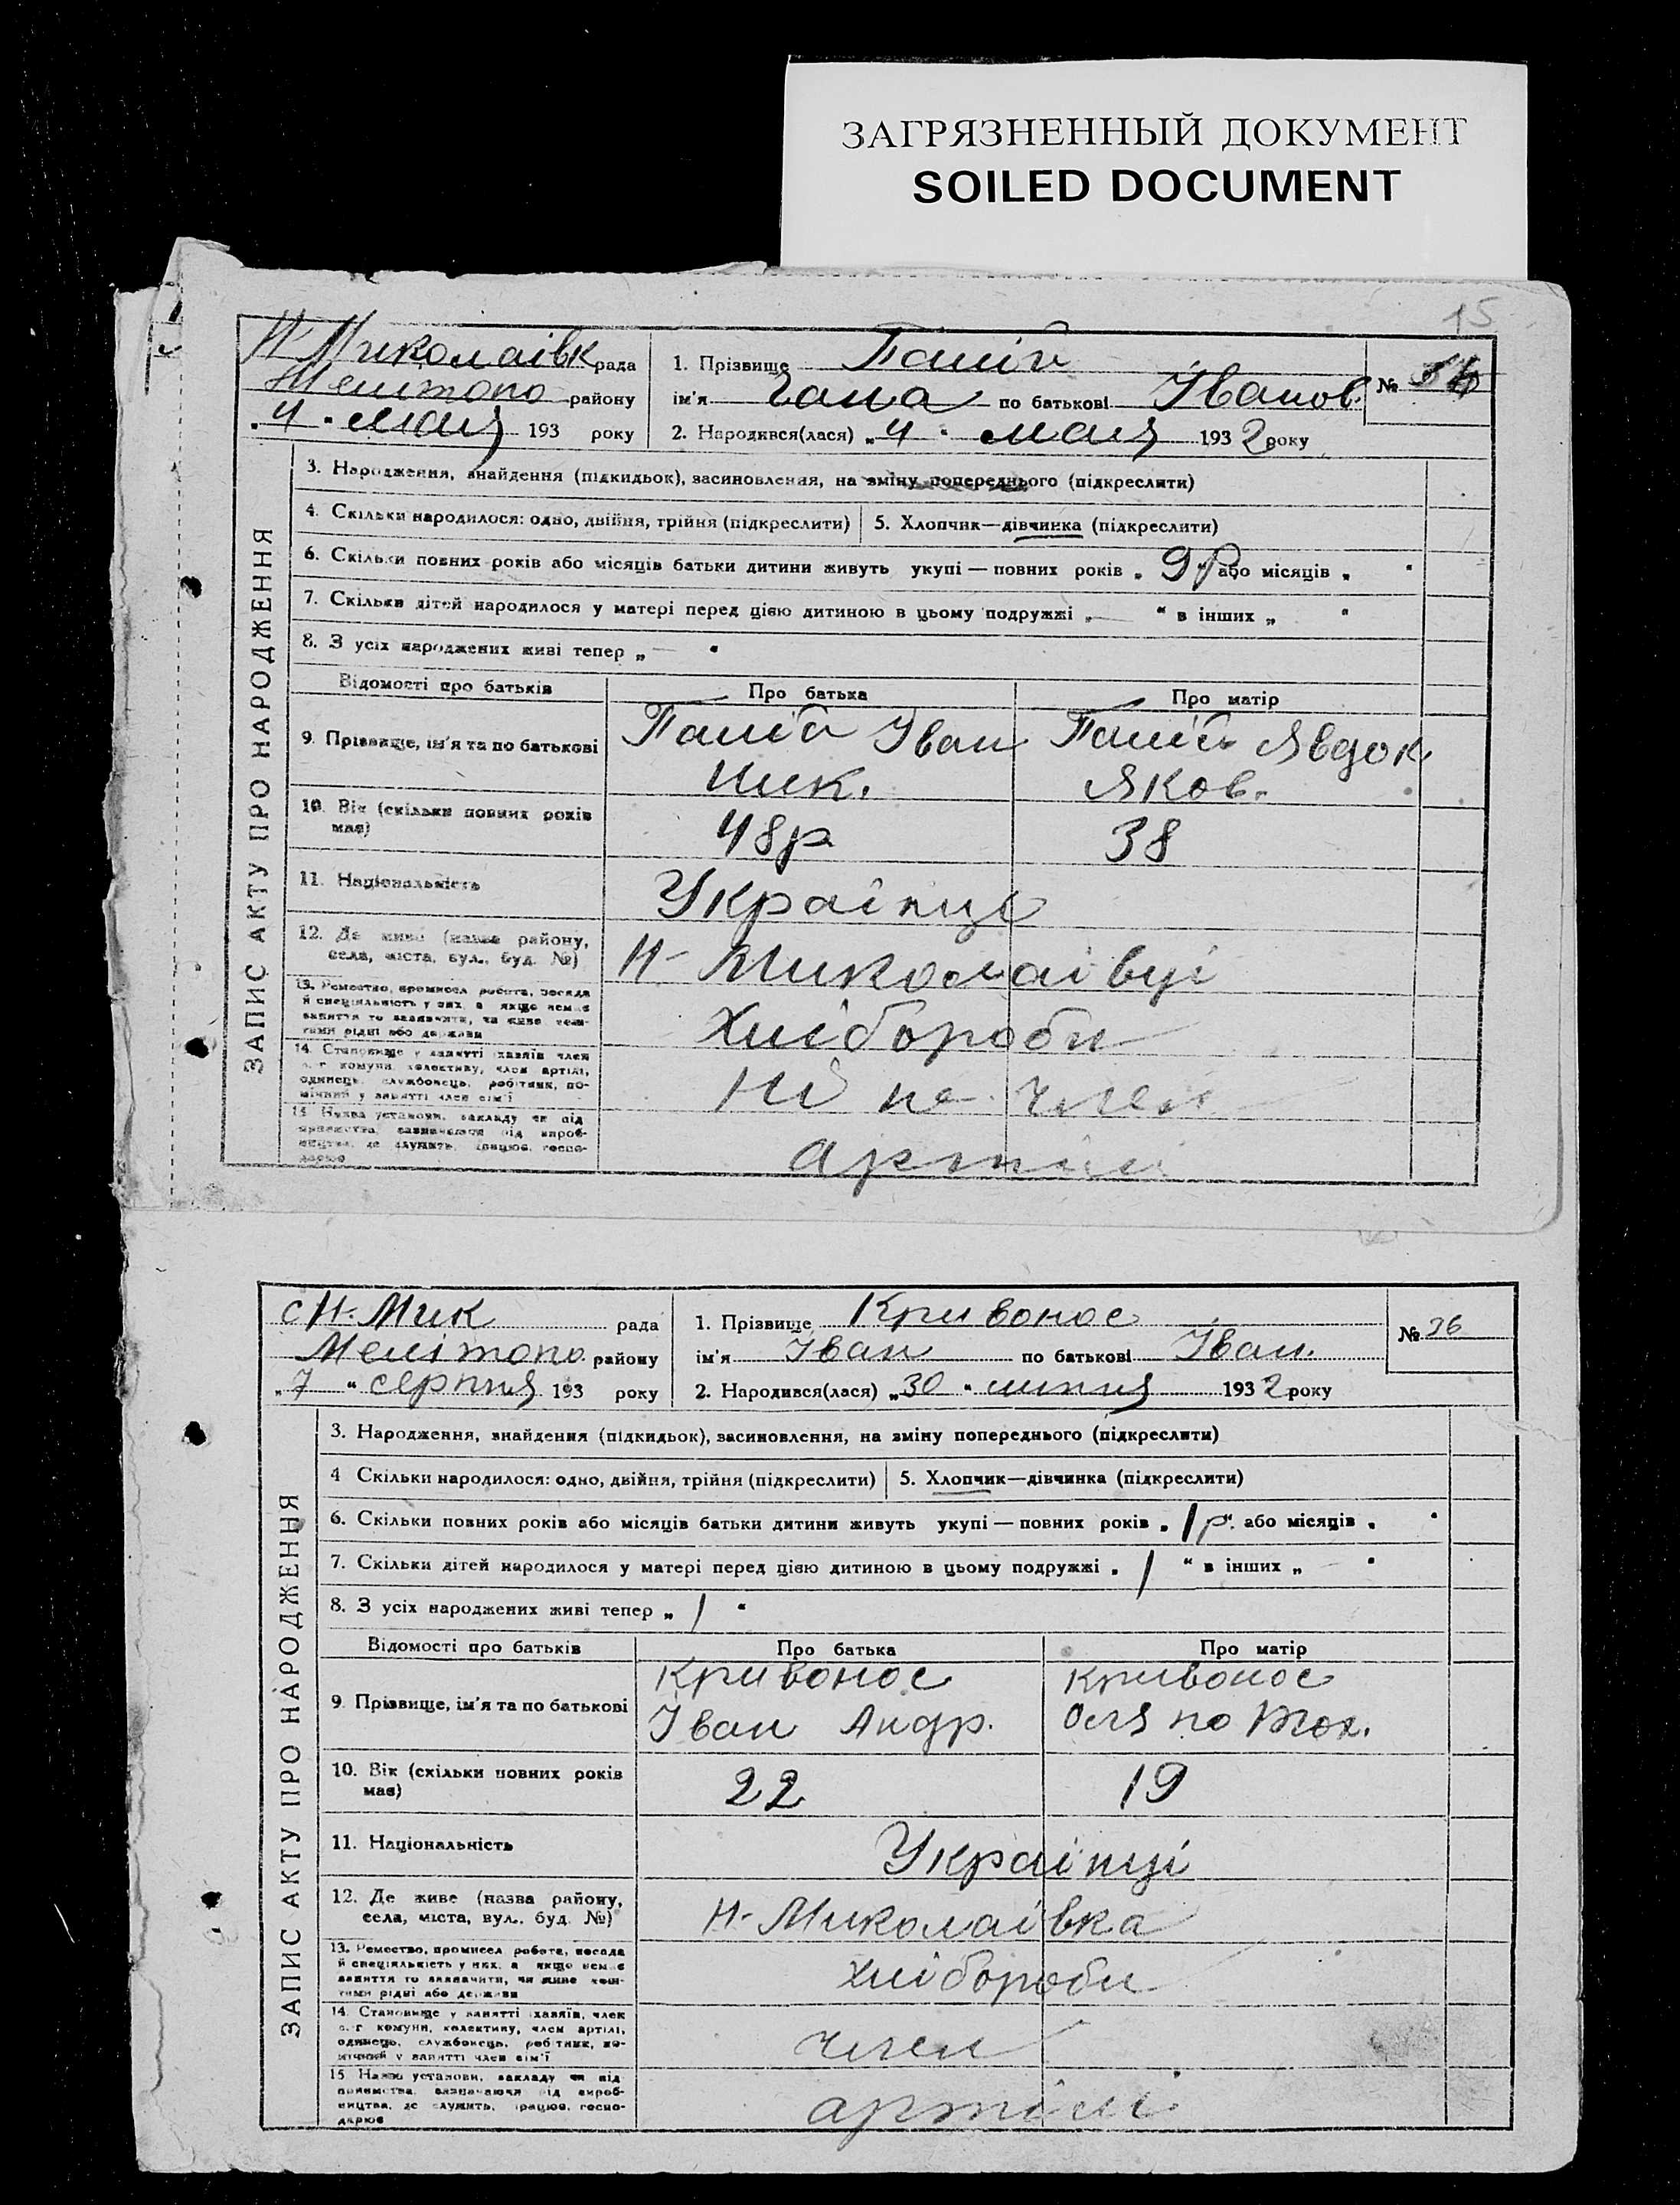 ЗАГРЯЗНЕННЫЙ ДОКУМЕНТ
SOILED DOCUMENT
15
Н Миколаівк рада
1. Прізвище Палій
№
Мелітопо району
ім'я Гана по батькові Іванов.
„4" мая 193 року
2. Народився(лася) „4" мая 1932 року
ЗАПИС АКТУ ПРО НАРОДЖЕННЯ
3. Народження, знайдення (підкидьок), засиновлення, на зміну попереднього (підкреслити)
4. Скільки народилося: одно, двійня, трійня (підкреслити) 5. Хлопчик—дівчинка (підкреслити)
6. Скільки повних років або місяців батьки дитини живуть укупі — повних років „9р" або місяців „ "
7. Скільки дітей народилося у матері перед цією дитиною в цьому подружжі „—" в інших „ "
8. З усіх народжених живі тепер „—"
Відомості про батьків Про батька Про матір
9. Прізвище, ім'я та по батькові
Палій Іван
Ник.
Палій Явдок
Яков.
10. Вік (скільки повних років має)
48р 38
11. Національність
Українці
12. Де живе (назва району,
села, міста, вул., буд. №)
Н-Миколаівці
13. Ремество, промисел, робота, посада
й спеціяльність у них, а якщо немає
заняття то зазначити, чи живе кош-
тами рідні або держави
Хлібороби
14. Становище у занятті (хазяїн, член
с.-г. комуни, колективу, член артілі,
одинець, службовець, робітник, по-
мічний у занятті член сім'ї
Ні не член
15. Назва установи, закладу чи під
приємства, зазначаючи від вироб-
ництва, де служить, працює, госпо-
дарює
артілі
с Н-Мик рада
1. Прізвище Кривонос
№ 36
Мелітопо. району
ім'я Іван по батькові Іван.
„7" серпня 193 року
2. Народився(лася) „30" липня 1932 року
ЗАПИС АКТУ ПРО НАРОДЖЕННЯ
3. Народження, знайдення (підкидьок), засиновлення, на зміну попереднього (підкреслити)
4 Скільки народилося: одно, двійня, трійня (підкреслити) 5. Хлопчик—дівчинка (підкреслити)
6. Скільки повних років або місяців батьки дитини живуть укупі — повних років „1р". або місяців „ "
7. Скільки дітей народилося у матері перед цією дитиною в цьому подружжі „1" в інших „—"
8. З усіх народжених живі тепер „1"
Відомості про батьків Про батька Про матір
9. Прізвище, ім'я та по батькові
Кривонос
Іван Андр.
Кривонос
Оля по
10. Вік (скільки повних років має)
22 19
11. Національність
Украінці
12. Де живе (назва району,
села, міста, вул., буд. №)
Н-Миколаівка
13. Ремество, промисел, робота, посада
й спеціяльність у них, а якщо немає
заняття то зазначити, чи живе кош-
тами рідні або держави
хлібороби
14. Становище у занятті (хазяїн, член
с.-г. комуни, колективу, член артілі,
одинець, службовець, робітник, по-
мічний у занятті член сім'ї
член
15 Назва установи, закладу чи під
приємства, зазначаючи від вироб-
ництва, де служить, працює, госпо-
дарює
артілі